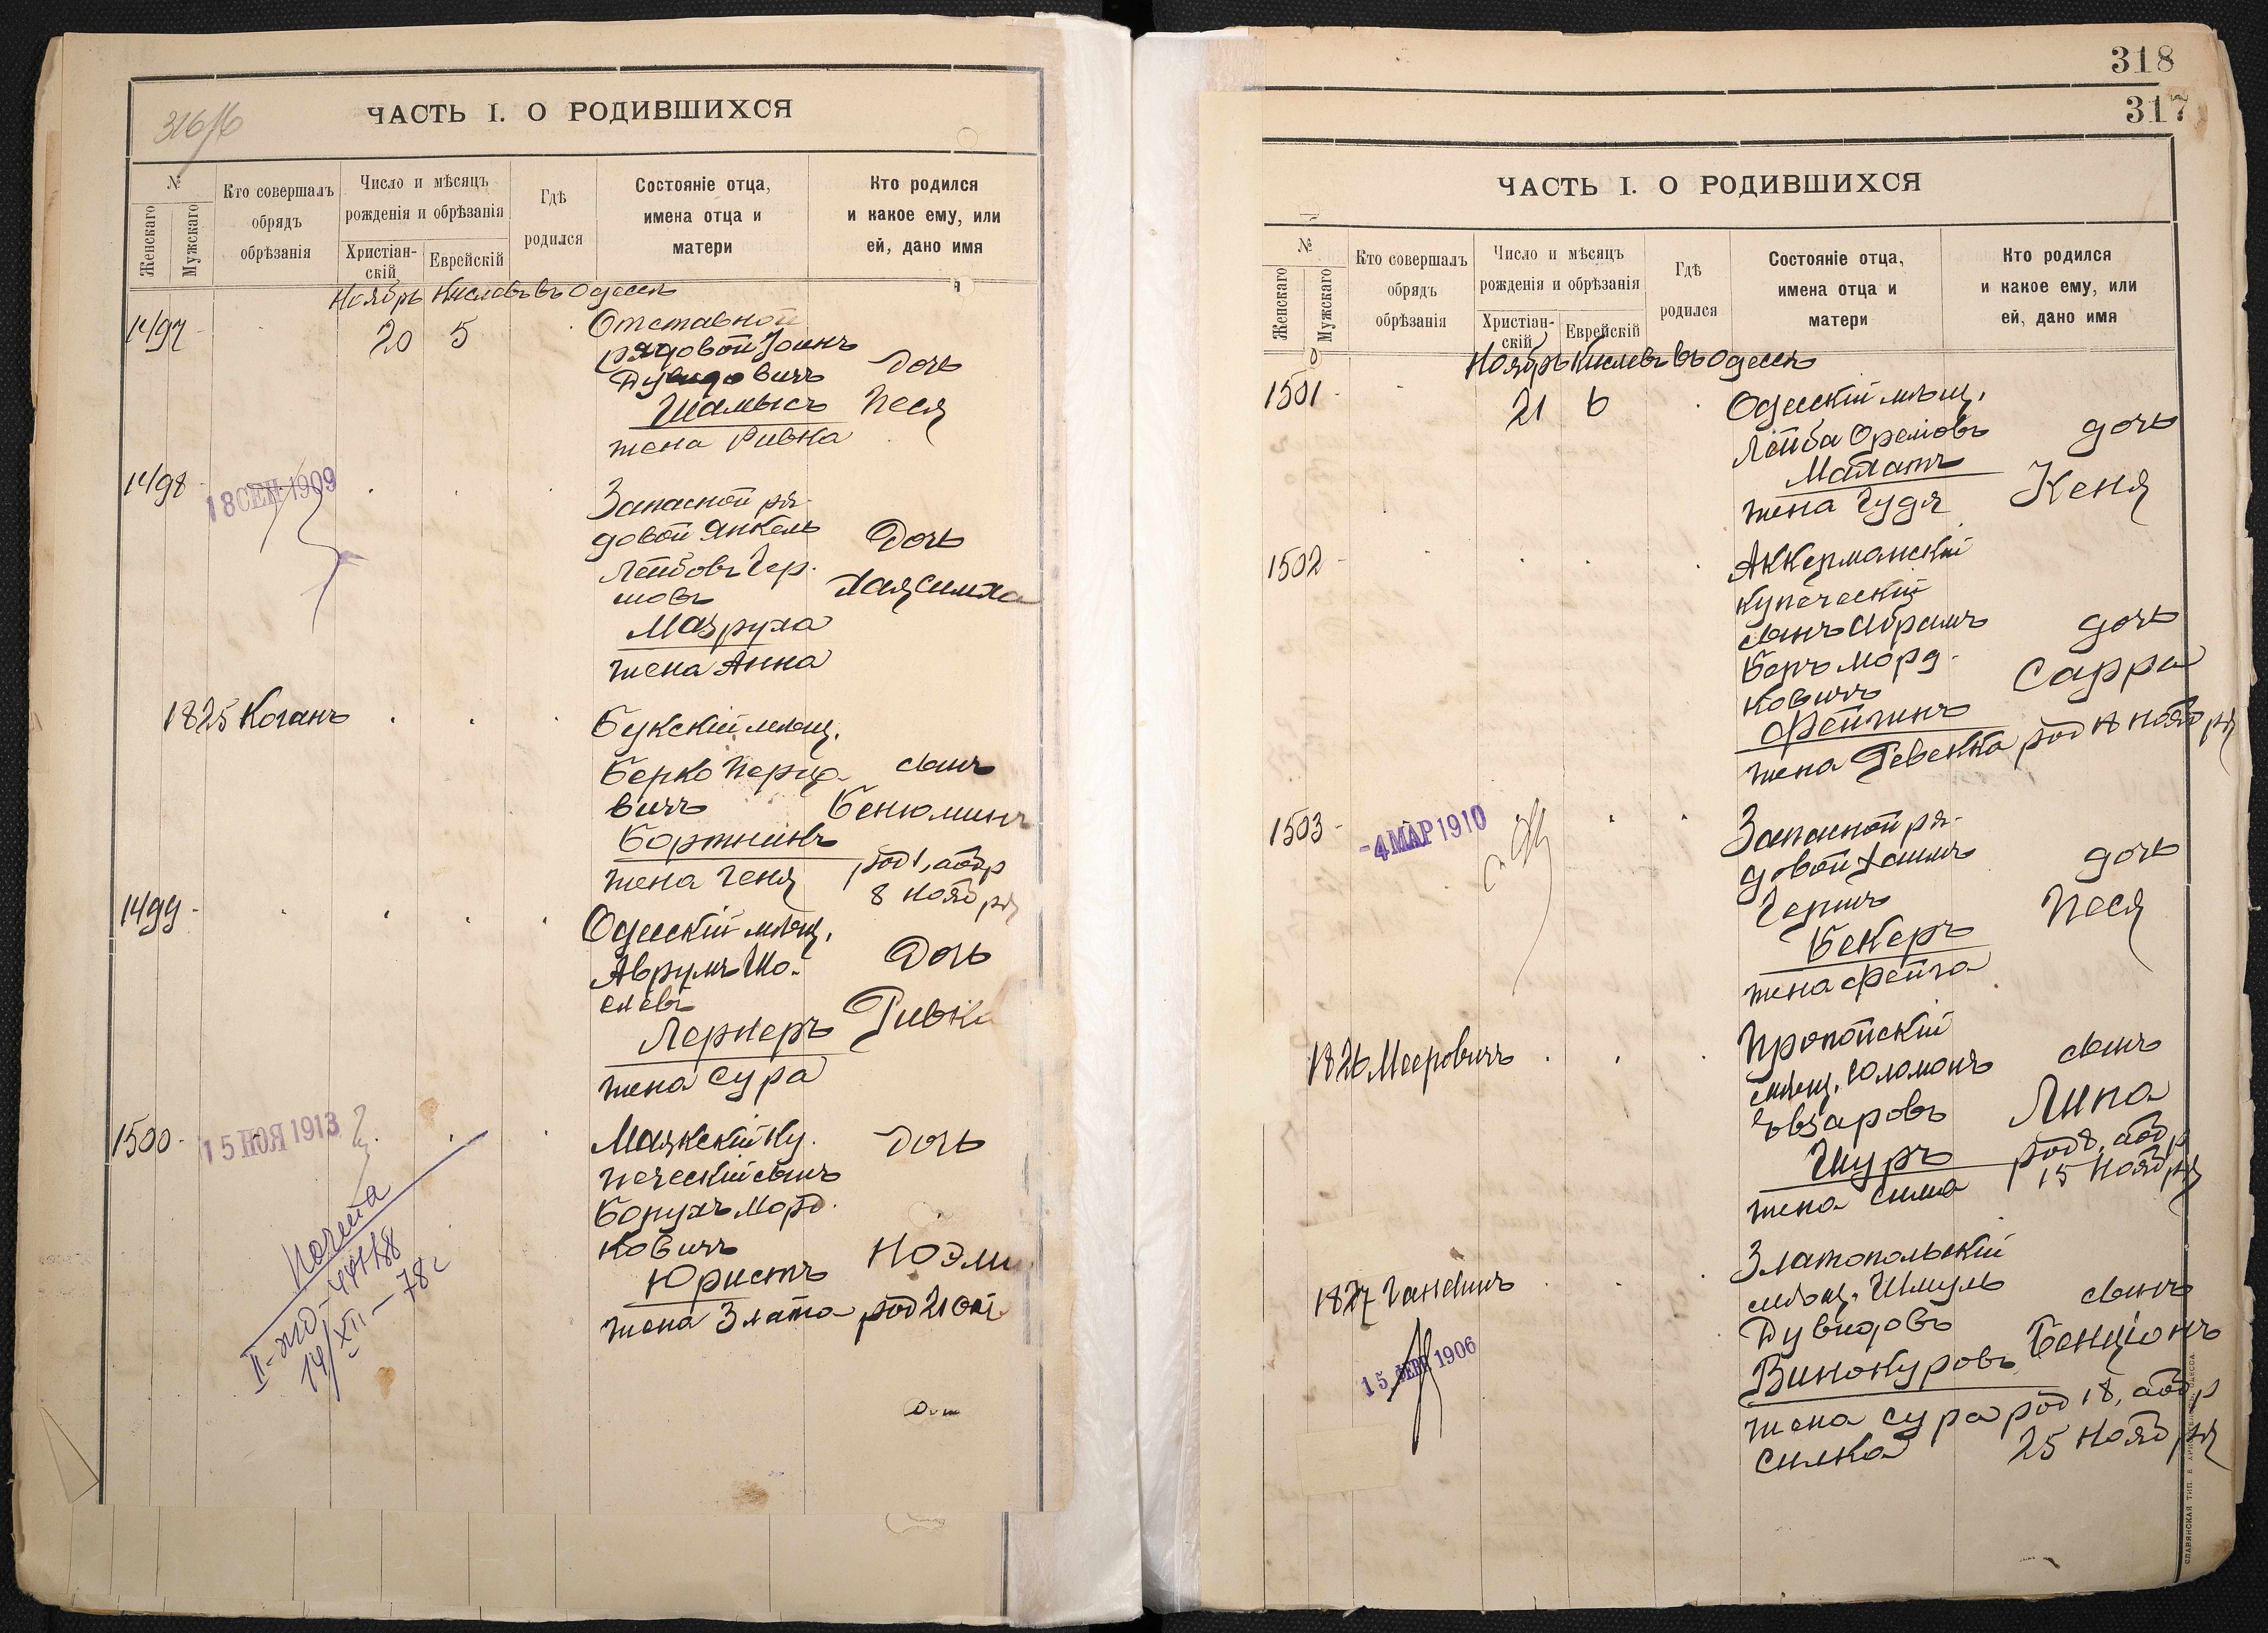 316/б
ЧАСТЬ I. О РОДИВШИХСЯ
№
Женскаго
Мужскаго
Кто совершалъ
обрядъ
обрѣзанія
Число и мѣсяцъ
рожденія и обрѣзанія
Христіан-
скій
Еврейскій
Гдѣ
родился
Состояніе отца,
имена отца и
матери
Кто родился
и какое ему, или
ей, дано имя
Ноябрь Кислевъ въ Одессѣ
1497 20 5 Отставной
рядовой
Дувидовичъ дочь
Шамысъ Песя
жена Ривка
1498 18 СЕН 1909 Запасной ря-
довой Янкель Дочь
Лейбовъ Гер-
шовъ Хая Симха
Мазруха
жена Анна
1825 Коганъ Букскій мѣщ.
Берко Перцо- сынъ
вичъ Бенюминъ
Бортникъ
жена Геня род 1, аобр
8 Ноября
1499 Одесскій мѣщ.
Аврумъ Шо- Дочь
елевъ
Лернеръ Ривка
жена Сура
1500 15 НОЯ 1913 Маякскій ку- Дочь
печескій сынъ
Борухъ Морд-
ковичъ Ноэми
Юристъ
жена Злата род 21 Окт
II-жо-
14/XII-78г
318
317
ЧАСТЬ I. О РОДИВШИХСЯ
№
Женскаго
Мужскаго
Кто совершалъ
обрядъ
обрѣзанія
Число и мѣсяцъ
рожденія и обрѣзанія
Христіан-
скій
Еврейскій
Гдѣ
родился
Состояніе отца,
имена отца и
матери
Кто родился
и какое ему, или
ей, дано имя
Ноябрь Кислевъ въ Одессѣ
1501 21 6 Одесскій мѣщ.
Лейба Оремовъ дочь
Маламъ
жена Гудя Кеня
1502 Аккерманскій
купеческій
сынъ Абрамъ дочь
Беръ Морд-
ковичъ Сарра
Фейгинъ
жена Ревекка род 18 ноября
1503 -4 МАР 1910 Запасной ря-
довой Хаимъ дочь
Гершъ Песя
Бекеръ
жена Фейга
1826 Мееровичъ Пропойскій
мѣщ. Соломонъ сынъ
Овзаровъ Липа
Шуръ род 8, аобр
жена Сима 15 Ноября
1827 Ганелинъ Златопольскій
мѣщ. Шмуль сынъ
Дувидовъ Бенціонъ
Винокуровъ
15 ФЕВ 1906
жена Сура род 18, аобр
Силка 25 Ноября
СЛАВЯНСКАЯ ТИП. Н. ХРИСОГЕЛОСЪ, ОДЕССА.